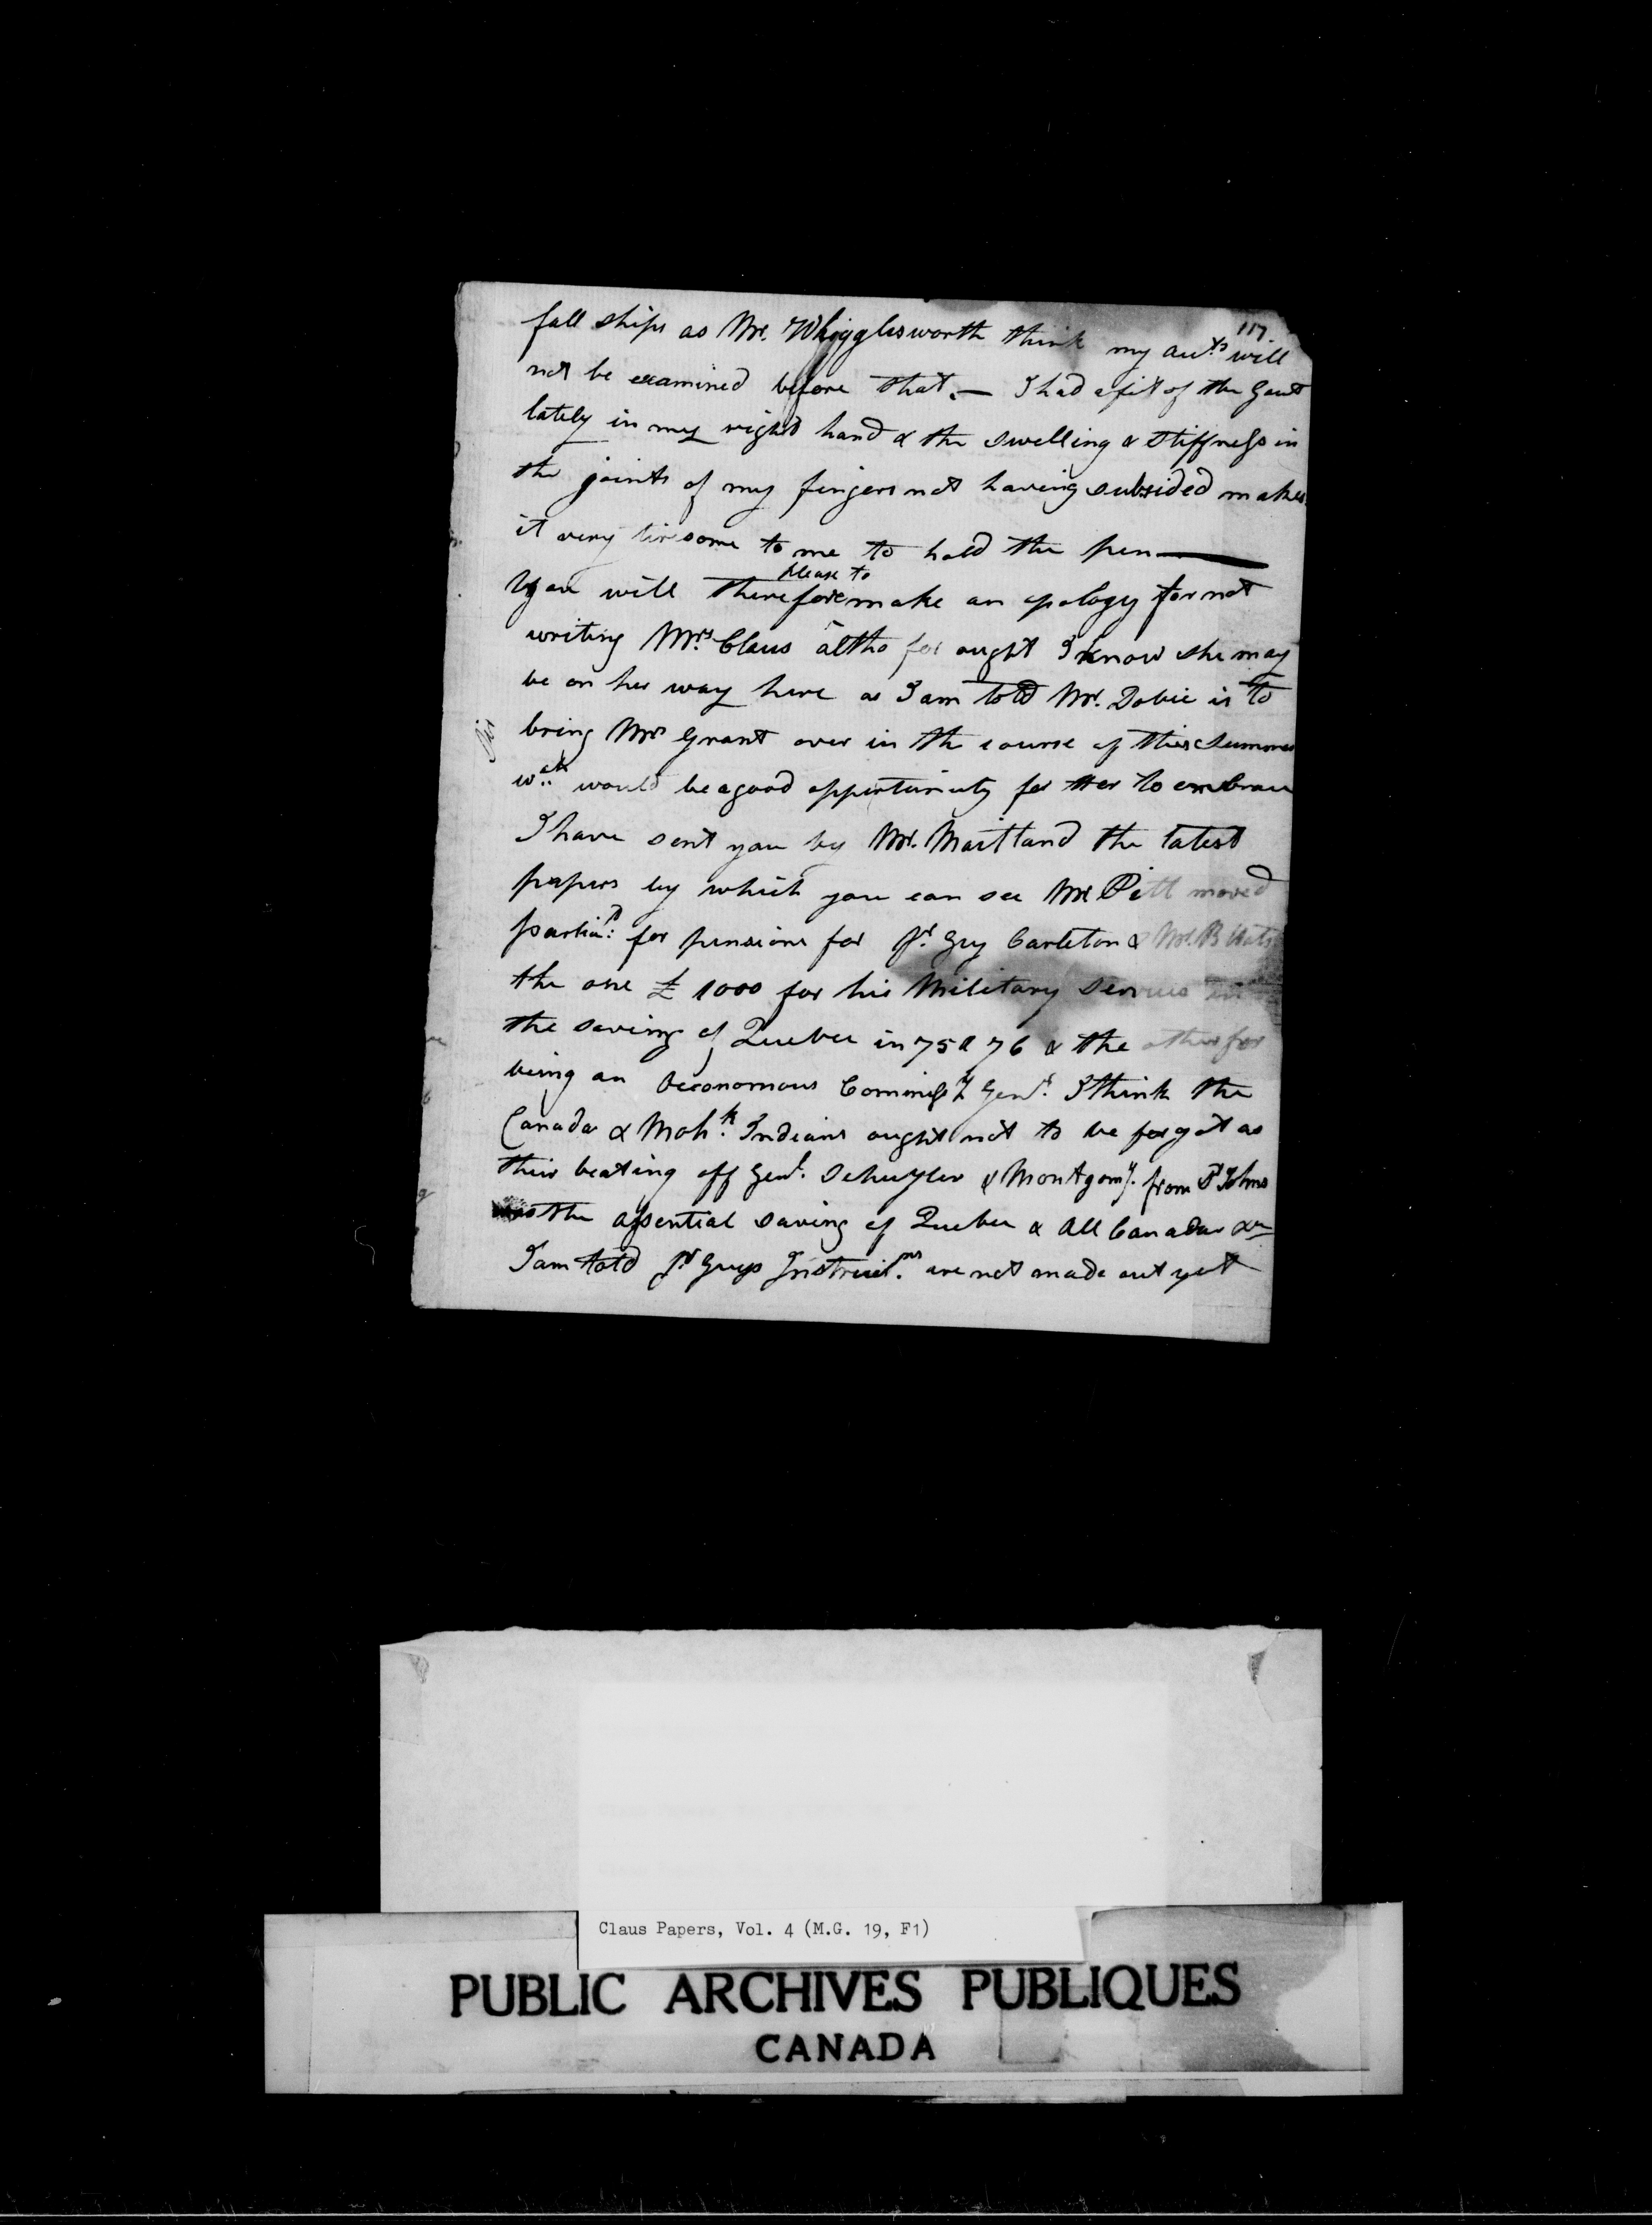 117
fall ships as Mr. Whigglesworth think my acts will
not be examined before that. — I had a fit of the Gout
lately in my right hand & the swelling & stiffness in
the joints of my fingers not having subsided makes
it very tiresome to me to hold the pen —
please to
You will therefore make an apology for not
writing Mrs. Claus altho for ought I know she may
be on her way here as I am told Mr. Dobie is to
bring Mrs Grant over in the course of this Summer
wch would be a good opportunity for her to embrace
I have sent you by Mr. Maitland the latest
papers by which you can see Mr Pitt moved
parliat: for pensions for Sr. Guy Carleton & Mr. B Wats
the one £ 1000 for his Military Services in
the saving of Quebec in 75 & 76 & the other for
being an Oeconomous Commissy Genl. I think the
Canada & Mohk. Indians ought not to be forgot as
their beating off Genl. Schuyler & Montgomy. from St Johns
was the assential saving of Quebec & all Canada &c
I am told Sr Guys Instructns. are not made out yet
Claus Papers, Vol. 4 (M.G. 19, F1)
PUBLIC ARCHIVES PUBLIQUES
CANADA